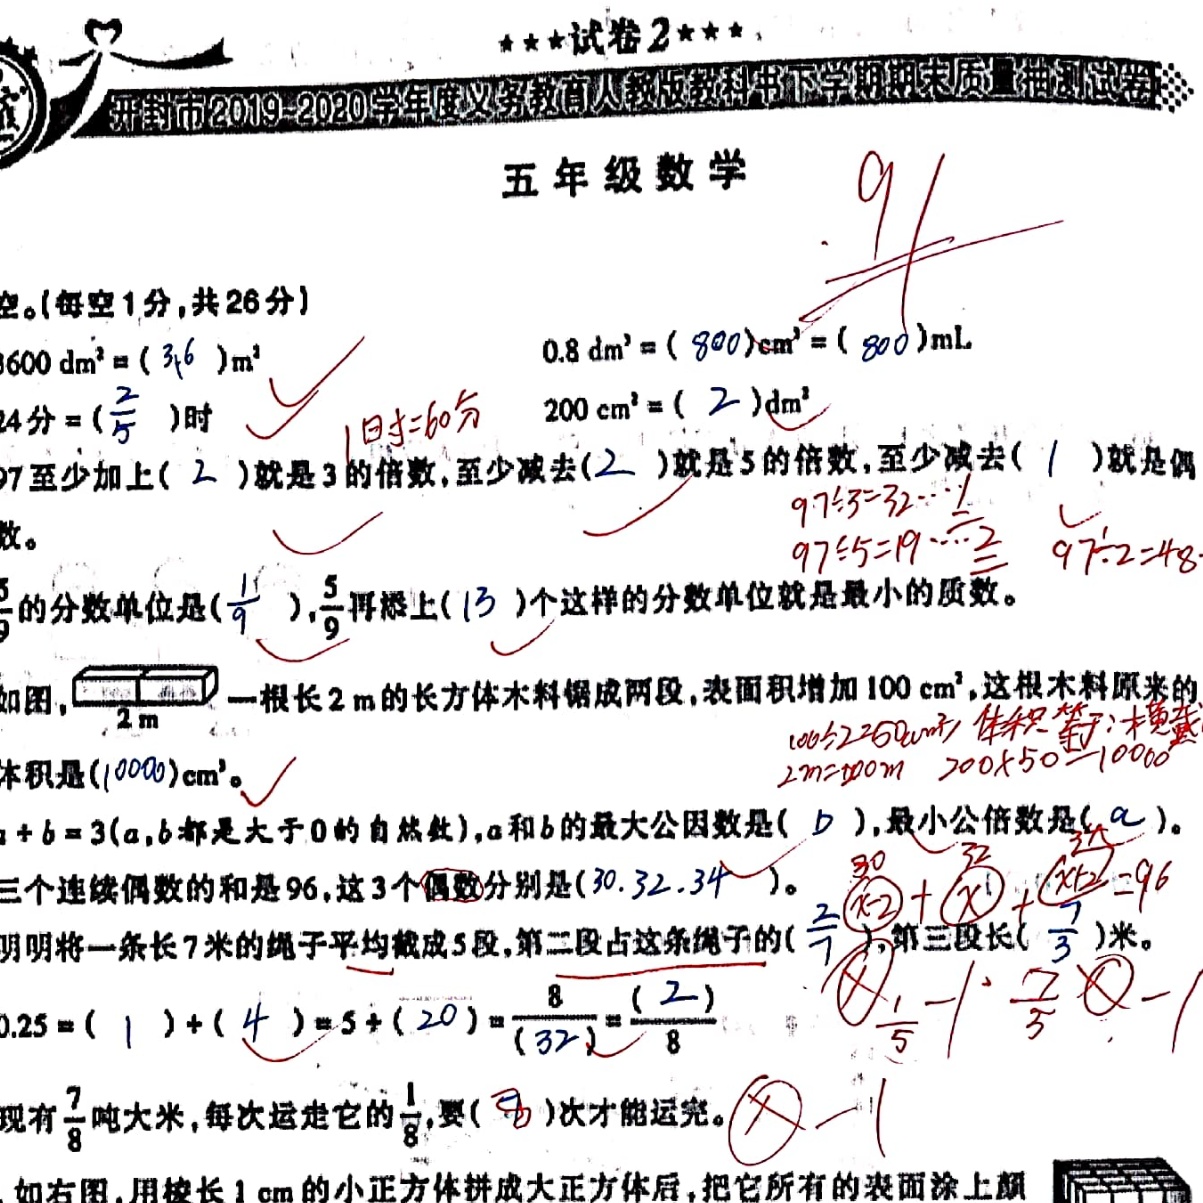 ★★★试卷2★★★
开封市2019-2020学年度义务教育人教版教科书下学期期末质量抽测试卷
五年级数学
91
空。(每空1分,共26分)
3600 dm²=( 3,6 )m² 0.8 dm³=( 800 )cm³=( 800 )mL
24分=( 2/5 )时 200 cm²=( 2 )dm²
1时=60分
97至少加上( 2 )就是3的倍数,至少减去( 2 )就是5的倍数,至少减去( 1 )就是偶
97÷3=32……1
数。
97÷5=19……2 97÷2=48
5/9的分数单位是( 1/9 ),5/9再添上( 13 )个这样的分数单位就是最小的质数。
如图, 一根长2 m的长方体木料锯成两段,表面积增加100 cm²,这根木料原来的
2 m
100÷2=50(cm²) 体积等于:横截
体积是(10000)cm³。
200×50=10000
a÷b=3(a,b都是大于0的自然数),a和b的最大公因数是( b ),最小公倍数是( a )。
30 32 34
三个连续偶数的和是96,这3个偶数分别是(30.32.34)。
(x-2)+(x)+(x+2)=96
明明将一条长7米的绳子平均截成5段,第二段占这条绳子的( 2/7 ),第三段长( 7/3 )米。
1/5 -1 7/5 -1
0.25=( 1 )÷( 4 )=5÷( 20 )=8/(32)=(2)/8
现有7/8吨大米,每次运走它的1/8,要( 8 )次才能运完。
-1
如右图,用棱长1 cm的小正方体拼成大正方体后,把它所有的表面涂上颜